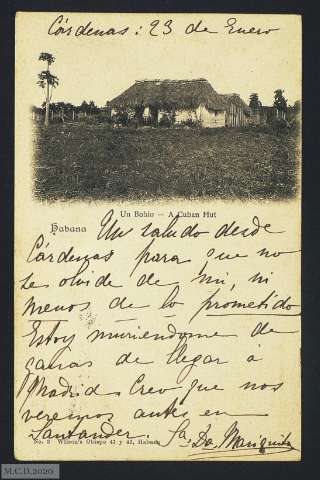 Cárdenas: 23 de Enero
Un Bohio — A Cuban Hut
Habana
Un saludo desde
Cárdenas para que no
se olvide de mi, ni
menos de lo prometido
Estoy muriendome de
ganas de llegar á
Madrid. Creo que nos
veremos antes en
Santander. Sa. Da. Mariquita
No. 3 Wilson's Obispo 41 y 43, Habana
M.C.D.2020